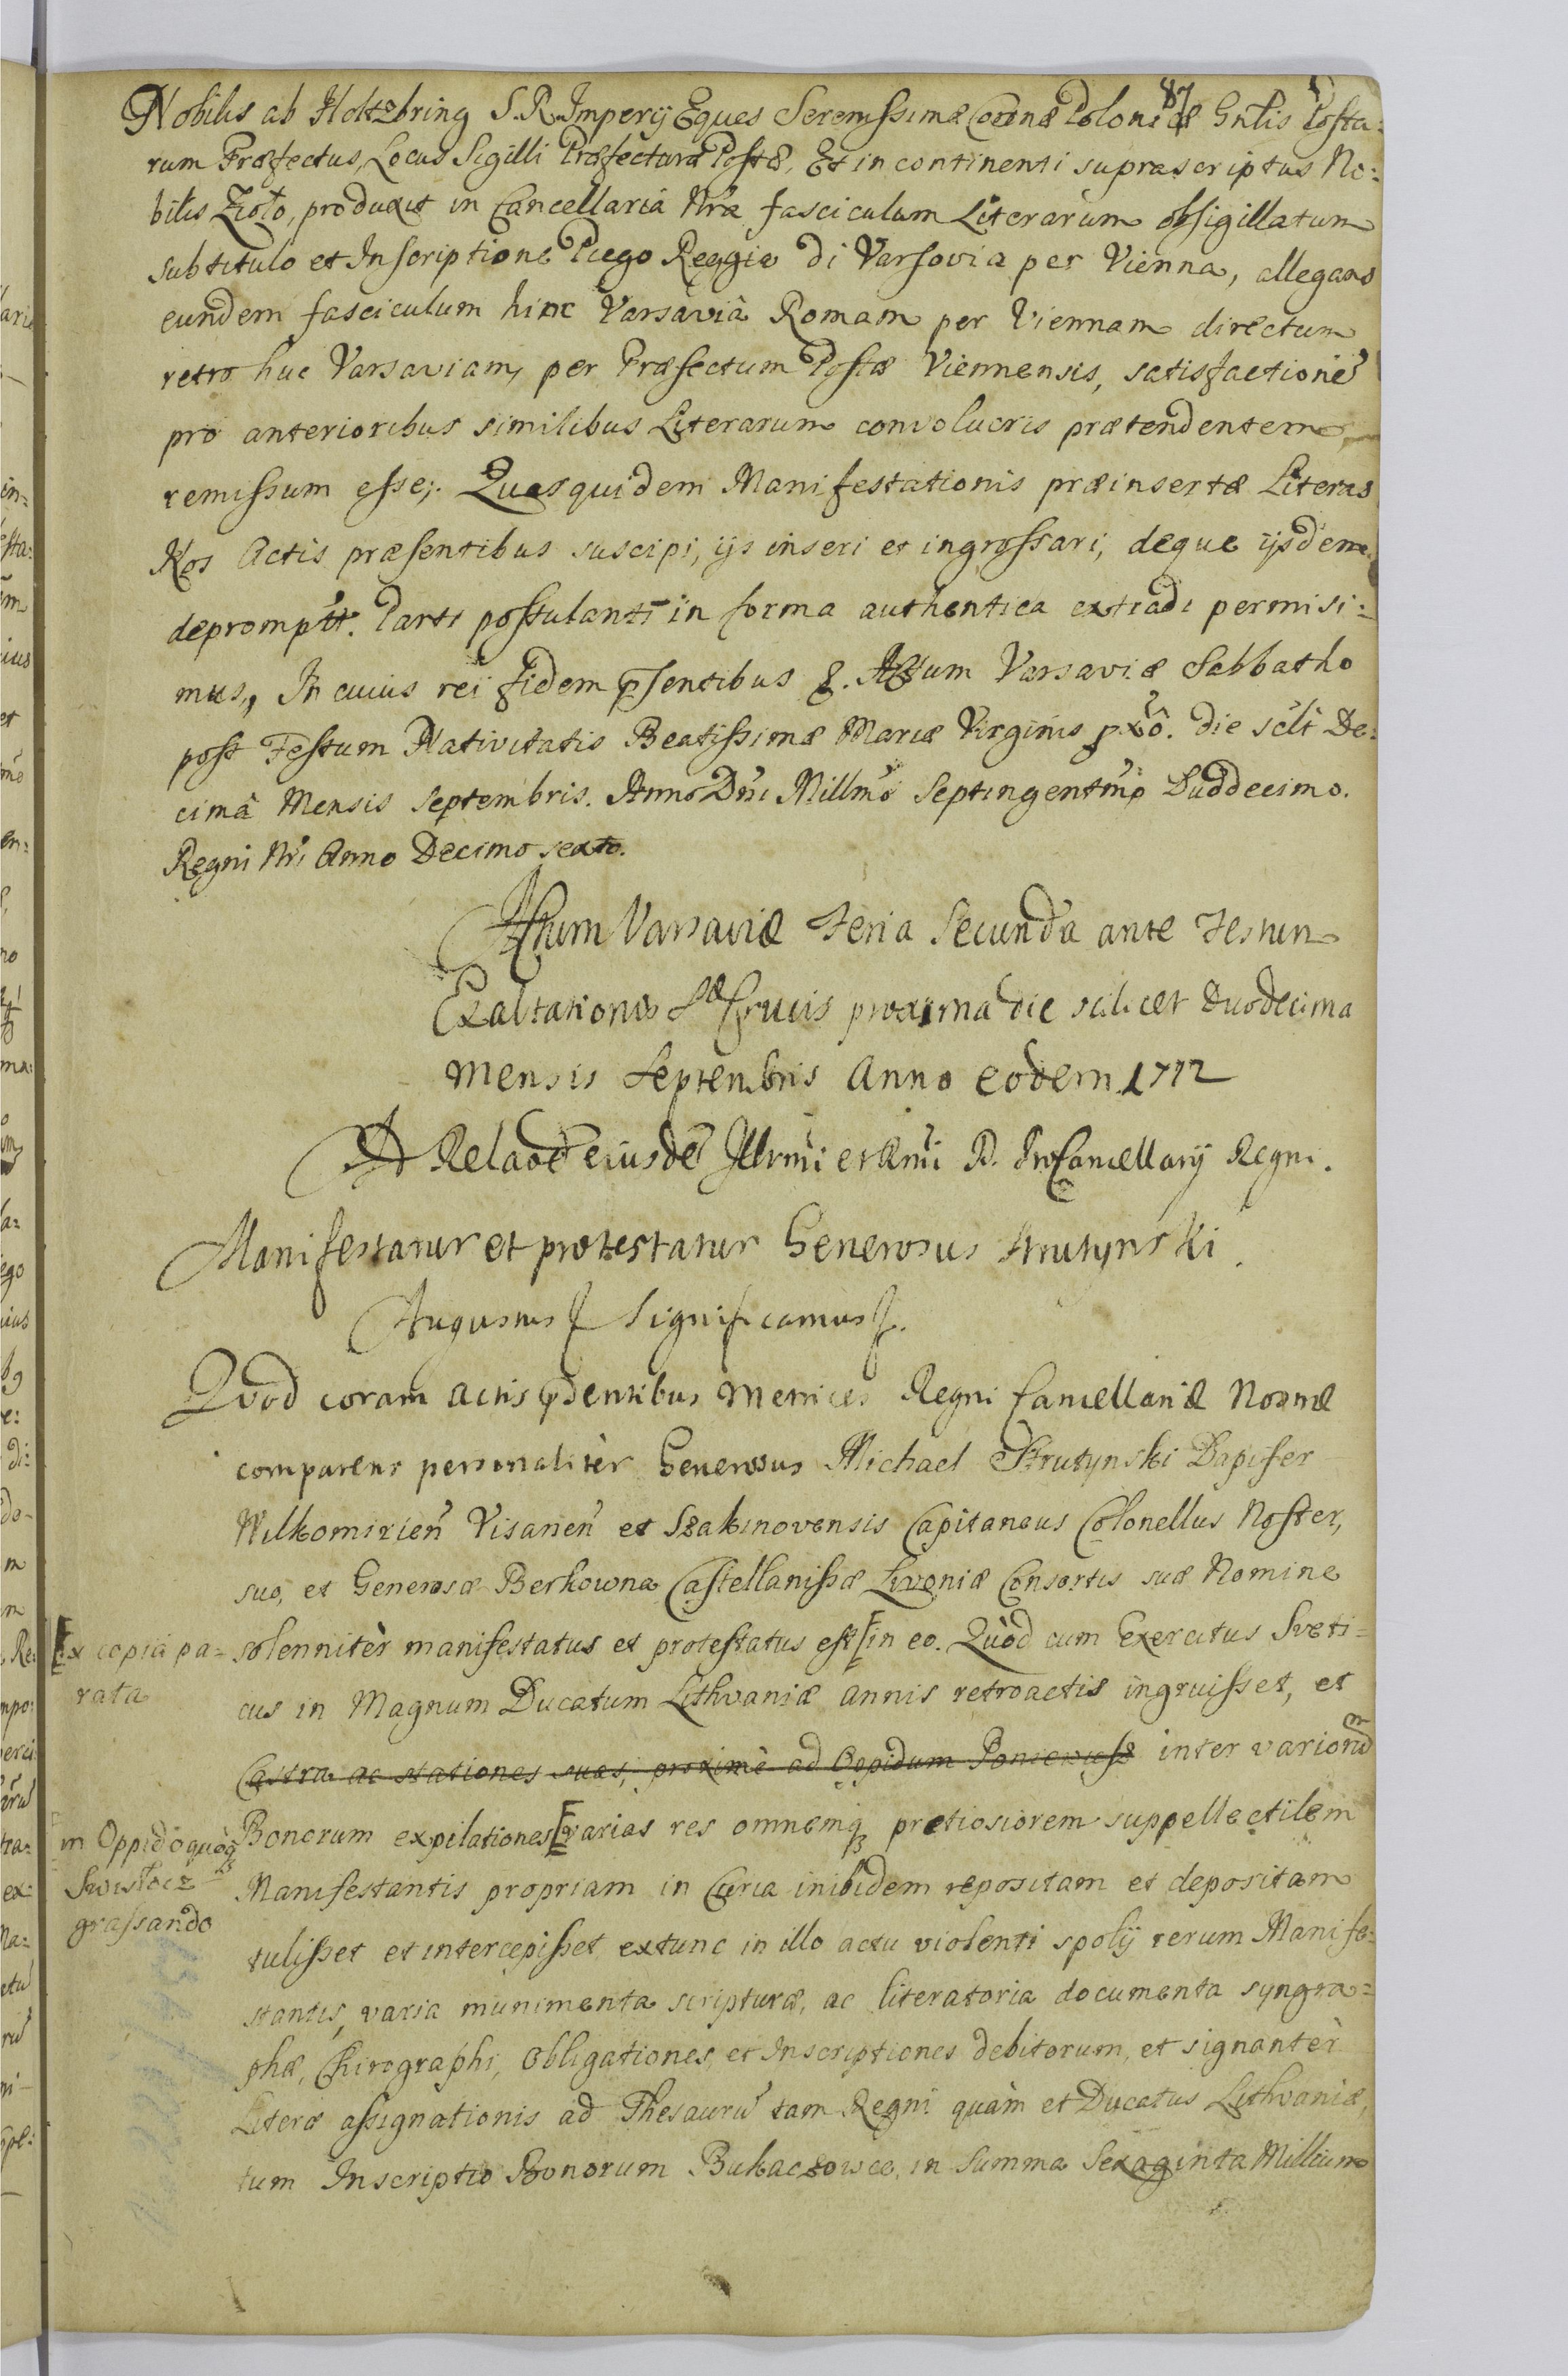 87
Nobilis ab Holtzbring S. R. Imperij Eques Serenissimæ Coronæ Poloniæ Gnlis Posta:
rum Præfectus, Locus Sigilli Præfecturæ Postæ, Et in continenti suprascriptus No:
bilis Zioło, produxit in Cancellariâ Nrâ fasciculum Literarum obsigillatum
sub titulo et Inscriptione Piego Reggio di Varsovia per Vienna, allegans
eundem fasciculum hinc Varsaviâ Romam per Viennam directum
retro huc Varsaviam, per Præfectum Postæ Viennensis, satisfactione
pro anterioribus similibus Literarum convolucris prætendentem,
remissum esse; Quas quidem Manifestationis præinsertæ Literas
Nos Actis præsentibus suscipi, ijs inseri et ingrossari, deque ijsdem
depromptt. Parti postulanti in forma authentica extradi permisi:
mus, In cuius rei fidem psentibus &. Actum Varsaviæ Sabbatho
post Festum Nativitatis Beatissimæ Mariæ Virginis pxo. die sclt De:
cimâ Mensis Septembris. Anno Dni Millmo Septingentmo Duodecimo.
Regni Nri Anno Decimo sexto.
Actum Varsaviæ Feria Secunda ante Festum
Exaltationis Sæ Crucis proxima die scilicet Duodecima
Mensis Septembris Anno eodem 1712
Ad Relaoē eiusdē Illrmi et Rmi D. ProCancellarij Regni.
Manifestatur et protestatur Generosus Strutynski.
Augustus & Significamus &.
Quod coram Actis pdentibus Metrices Regni Cancellariæ Nostræ
comparens personalitèr Generosus Michael Strutynski Dapifer
Wilkomirien Visanen et Szakinovensis Capitaneus Colonellus Noster,
suo, et Generosæ Berkowna Castellanissæ Livoniæ Consortis suæ Nomine
[Ex copia pa=
rata
solennitèr manifestatus et protestatus est [in eo. Quòd cum Exercitus Sveti=
cus in Magnum Ducatum Lithvaniæ annis retroactis ingruisset, et
Castra ac stationes suas, proximè ad Oppidum Poniewiesz inter varioru
in Oppido quoq
Swisłocz
grassando
Bonorum expilationes [varias res omnemq pretiosiorem suppellectilem
Manifestantis propriam in Curia inibidem repositam et depositam
tulisset et intercepisset extunc in illo actu violenti spolij rerum Manife=
stantis, varia munimenta scripturæ, ac literatoria documenta syngra=
phæ, Chirographi, Obligationes, et Inscriptiones debitorum, et signantèr
Literæ assignationis ad Thesauru tam Regni quàm et Ducatus Lithvaniæ,
tum Inscriptio Bonorum Bukaczowce, in Summa Sexaginta Millium